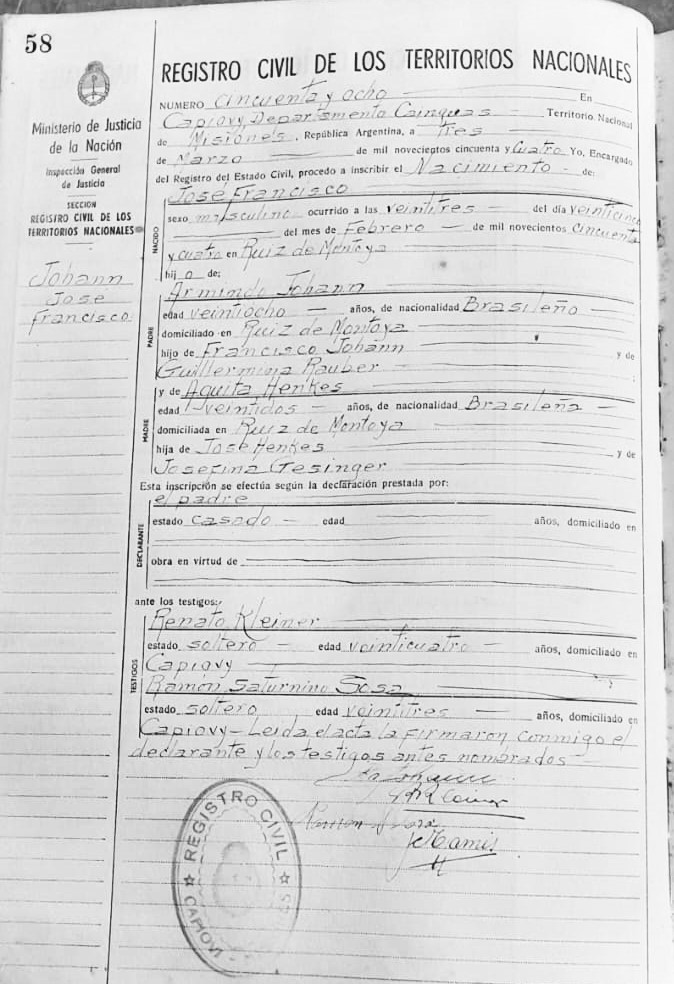 58
Ministerio de Justicia
de la Nación
Inspección General
de Justicia
SECCION
REGISTRO CIVIL DE LOS
TERRITORIOS NACIONALES
Johann
Jose
Francisco
REGISTRO CIVIL DE LOS TERRITORIOS NACIONALES
NUMERO cincuenta y ocho En
Capiovy, Departamento Cainguas Territorio Nacional
de Misiones, República Argentina, a tres
de Marzo de mil novecientos cincuenta y Cuatro Yo, Encargado
del Registro del Estado Civil, procedo a inscribir el Nacimiento de:
José Francisco
NACIDO
sexo masculino ocurrido a las veintitres del día veinticinco
del mes de Febrero de mil novecientos cincuenta
y cuatro en Ruiz de Montoya
hijo de:
Armindo Johann
PADRE
edad veintiocho años, de nacionalidad Brasileño
domiciliado en Ruiz de Montoya
hijo de Francisco Johann y de
Guillermina Rauber
y de Aquita Henkes
MADRE
edad veintidos años, de nacionalidad Brasileña
domiciliada en Ruiz de Montoya
hija de Jose Henkes y de
Josefina Gesinger
Esta inscripción se efectúa según la declaración prestada por:
el padre
DECLARANTE
estado casado edad años, domiciliado en
obra en virtud de
ante los testigos:
Renato Kleiner
TESTIGOS
estado soltero edad veinticuatro años, domiciliado en
Capiovy
Ramón Saturnino Sosa
estado soltero edad veintitres años, domiciliado en
Capiovy - Leida el acta la firmaron conmigo el
declarante y los testigos antes nombrados
REGISTRO CIVIL
CAPIOVI